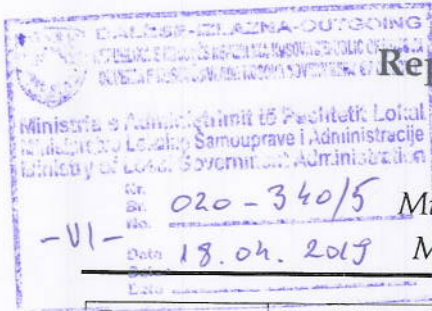 DALËSE-IZLAZNA-OUTGOING
Rep
Ministria e Administrimit të Pushtetit Lokal
Ministarstvo Lokalne Samouprave i Administracije
Ministry of Local Government Administration
Nr.
Br.
No. 020-340/5 M
-VI-
Data 18.04.2019 M
Date